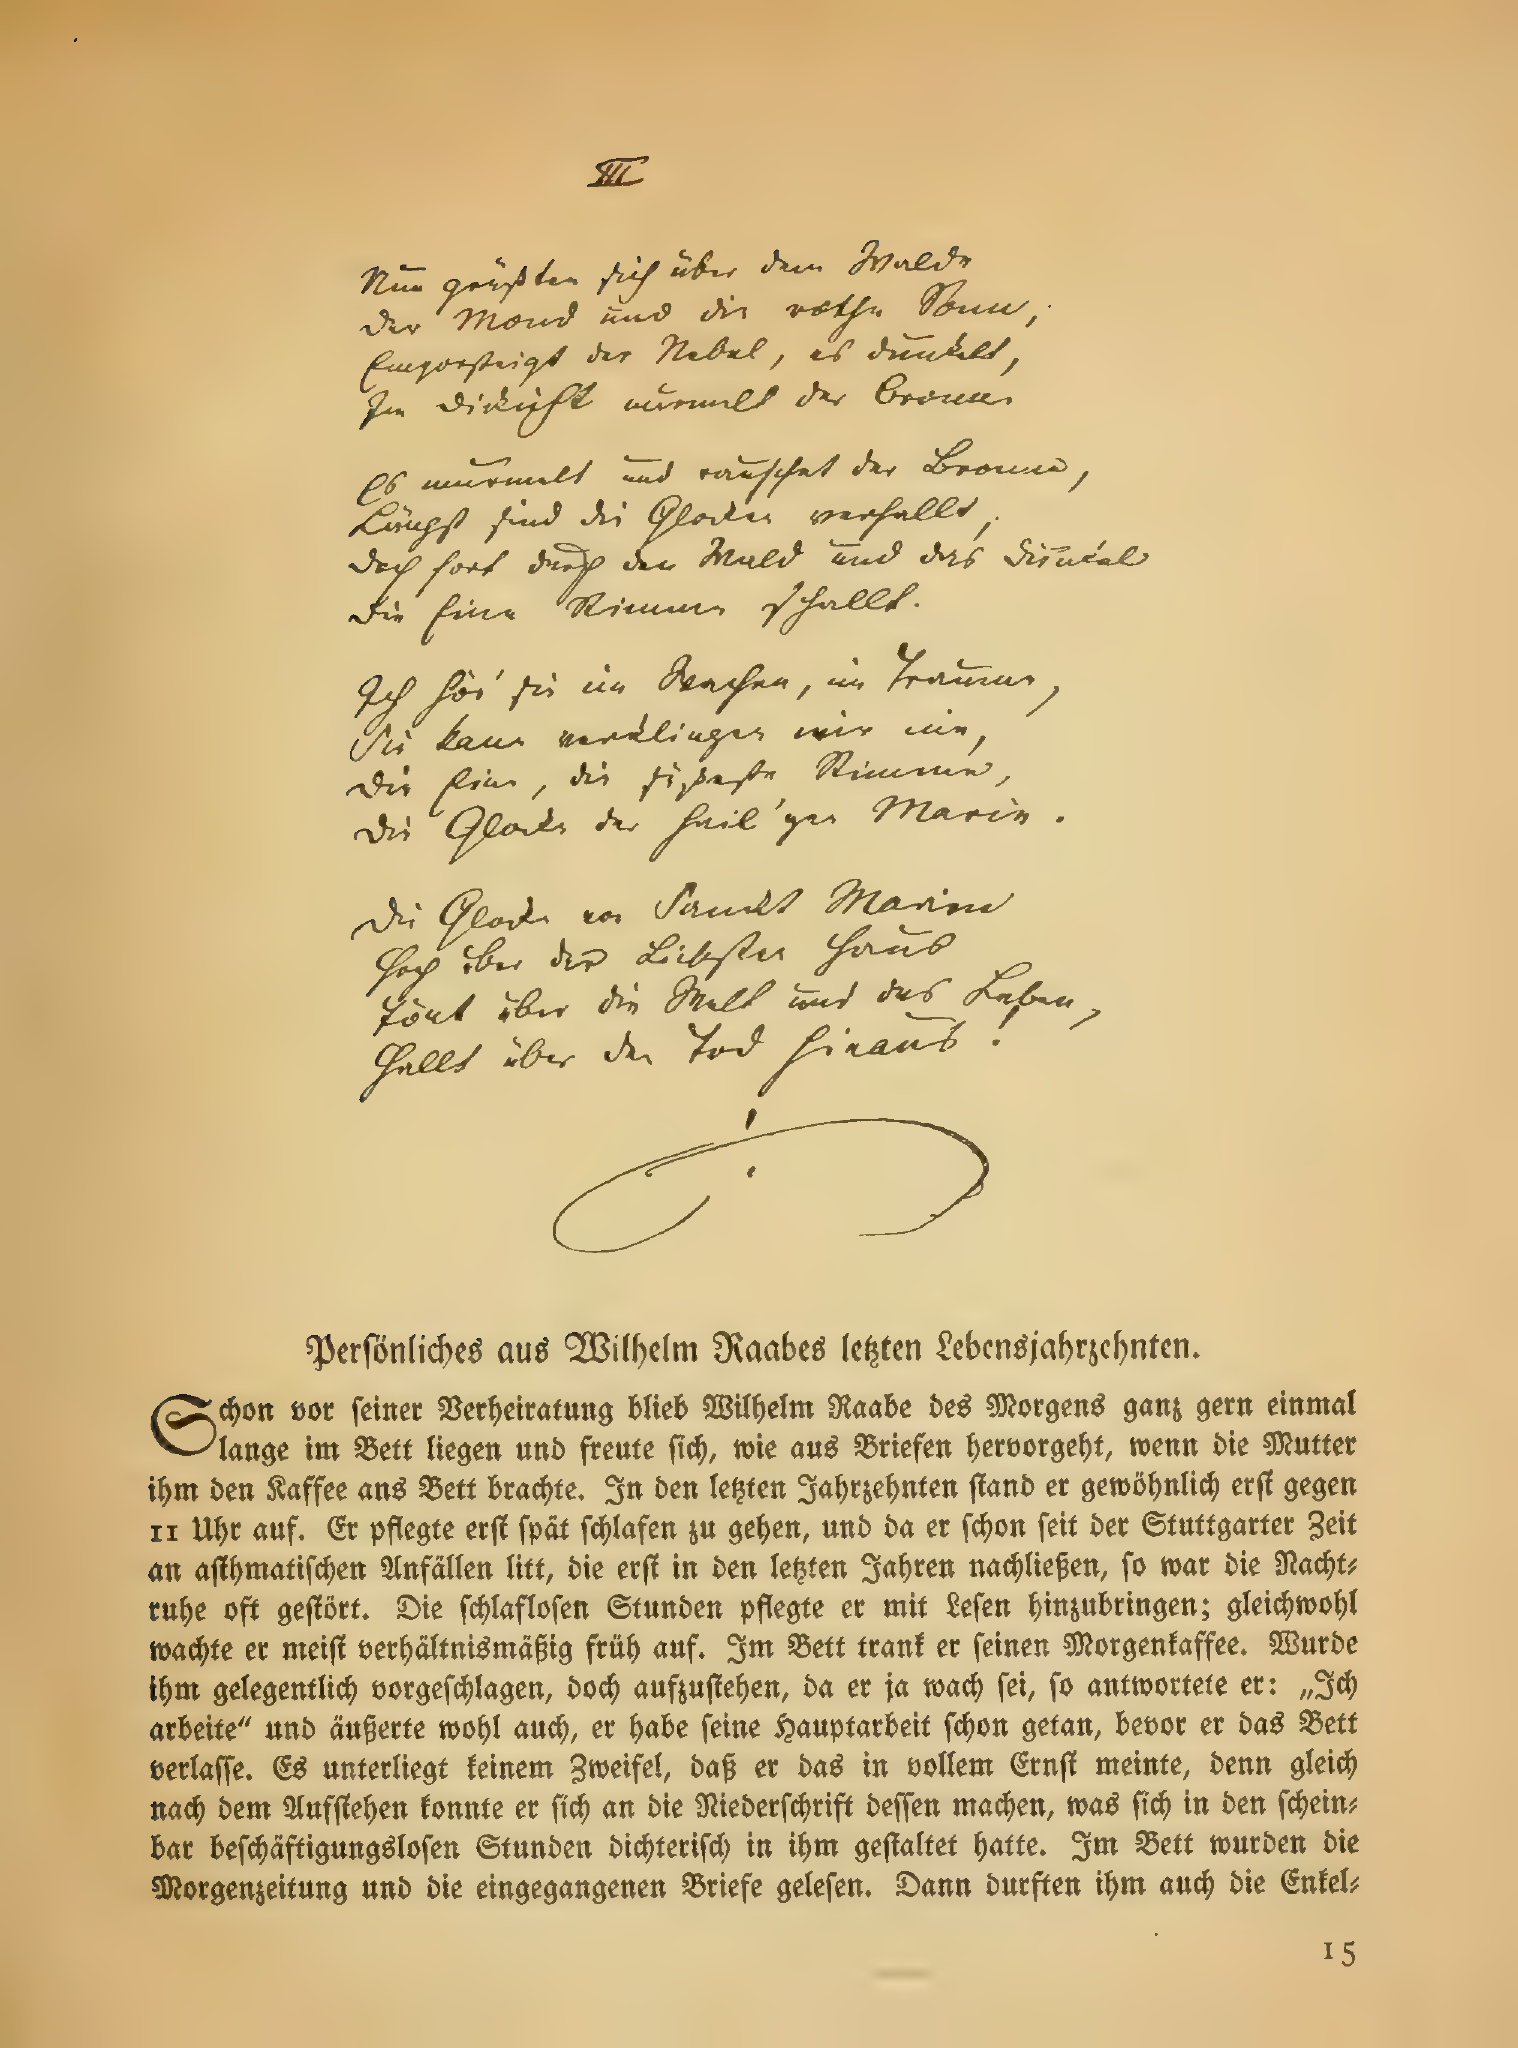 III
Nun grüßten sich über dem Walde
Der Mond und die rothe Sonn,
Emporsteigt der Nebel, es dunkelt,
Im Dickicht murmelt der Bronn.
Es murmelt und rauschet der Bronnen,
Längst sind die Glocken verhallt,
Doch fort durch den Wald und das Dunkel
Die Eine Stimme schallt.
Ich hör' sie im Wachen, im Traume,
Sie kann verklingen mir nie,
Die Eine, die süßeste Stimme,
Die Glocke der heil'gen Marie.
Die Glocke von Sankt Marien
Hoch über der Liebsten Haus
Tönt über die Welt und das Leben,
Hallt über den Tod hinaus!
!
Persönliches aus Wilhelm Raabes letzten Lebensjahrzehnten.
Schon vor seiner Verheiratung blieb Wilhelm Raabe des Morgens ganz gern einmal
lange im Bett liegen und freute sich, wie aus Briefen hervorgeht, wenn die Mutter
ihm den Kaffee ans Bett brachte. In den letzten Jahrzehnten stand er gewöhnlich erst gegen
11 Uhr auf. Er pflegte erst spät schlafen zu gehen, und da er schon seit der Stuttgarter Zeit
an asthmatischen Anfällen litt, die erst in den letzten Jahren nachließen, so war die Nacht-
ruhe oft gestört. Die schlaflosen Stunden pflegte er mit Lesen hinzubringen; gleichwohl
wachte er meist verhältnismäßig früh auf. Im Bett trank er seinen Morgenkaffee. Wurde
ihm gelegentlich vorgeschlagen, doch aufzustehen, da er ja wach sei, so antwortete er: „Ich
arbeite“ und äußerte wohl auch, er habe seine Hauptarbeit schon getan, bevor er das Bett
verlasse. Es unterliegt keinem Zweifel, daß er das in vollem Ernst meinte, denn gleich
nach dem Aufstehen konnte er sich an die Niederschrift dessen machen, was sich in den schein-
bar beschäftigungslosen Stunden dichterisch in ihm gestaltet hatte. Im Bett wurden die
Morgenzeitung und die eingegangenen Briefe gelesen. Dann durften ihm auch die Enkel-
15